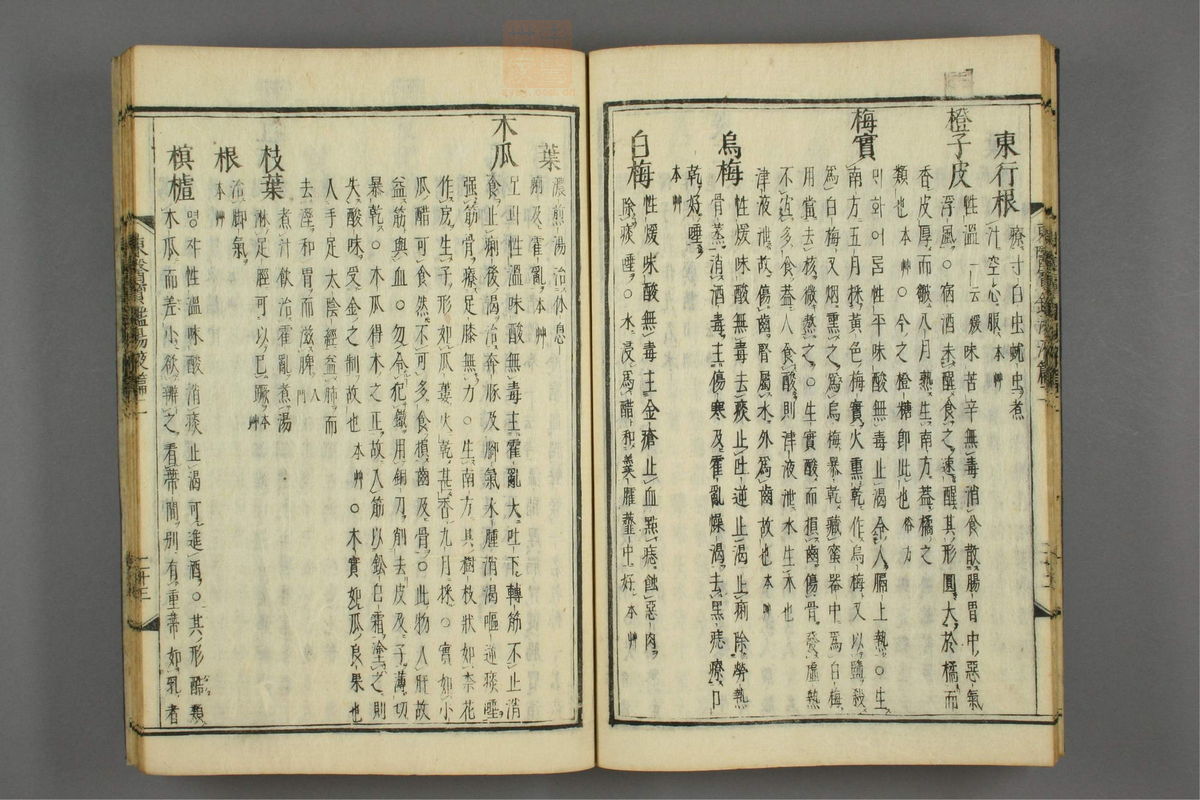 東行根 療寸白虫蚘虫煮
汁空心服本艸
橙子皮 性溫一云煖味苦辛無毒消食散腸胃中惡氣
浮風○宿酒未醒食之速醒其形圓大於橘而
香皮厚而皺八月熟生南方蓋橘之
類也本艸○今之橙糖卽此也俗方
梅實 ᄆᆡ화여ᄅᆞᆷ性平味酸無毒止渴令人膈上熱○生
南方五月採黃色梅實火熏乾作烏梅又以鹽殺
爲白梅又烟熏之爲烏梅暴乾藏蜜器中爲白梅
用當去核微熬之○生實酸而損齒傷骨發虛熱
不宜多食蓋人食酸則津液泄水生木也
津液泄故傷齒腎屬水外爲齒故也本艸
烏梅 性煖味酸無毒去痰止吐逆止渴止痢除勞熱
骨蒸消酒毒主傷寒及霍亂燥渴去黑痣療口
乾好唾
本艸
白梅 性煖味酸無毒主金瘡止血點痣蝕惡肉
除痰唾○水浸爲醋和羹臛虀中好本艸
葉 濃煎湯治休息
痢及霍亂本艸
木瓜 모과性溫味酸無毒主霍亂大吐下轉筋不止消
食止痢後渴治奔豚及脚氣水腫消渴嘔逆痰唾
強筋骨療足膝無力○生南方其樹枝狀如柰花
作房生子形如瓜蔞火乾甚香九月採○實如小
瓜醋可食然不可多食損齒及骨○此物入肝故
益筋與血○勿令犯鐵用銅刀削去皮及子薄切
暴乾○木瓜得木之正故入筋以鉛白霜塗之則
失酸味受金之制故也本艸○木實如瓜良果也
入手足太陰經益肺而
去濕和胃而滋脾入門
枝葉 煮汁飮治霍亂煮湯
淋足脛可以已蹶本艸
根 治脚氣
本艸
榠樝 명쟈性溫味酸消痰止渴可進酒○其形酷類
木瓜而差小欲辨之看蔕間別有重蔕如乳者
東醫寶鑑湯液篇二
二十三